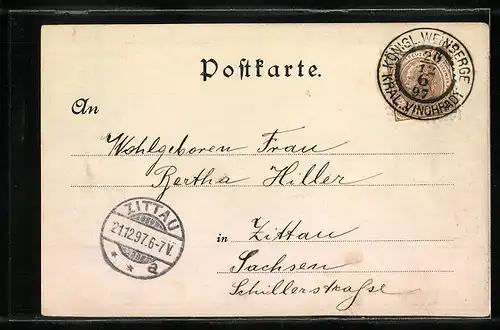 KÖNIGL. WEINBERGE
20
12
6
97
KRÁL. VINOHRADY
Postkarte.
An
Wohlgeboren Frau
Bertha Hiller
in Zittau
Sachsen
Schillerstraße
ZITTAU
21.12.97.6-7V.
* * a